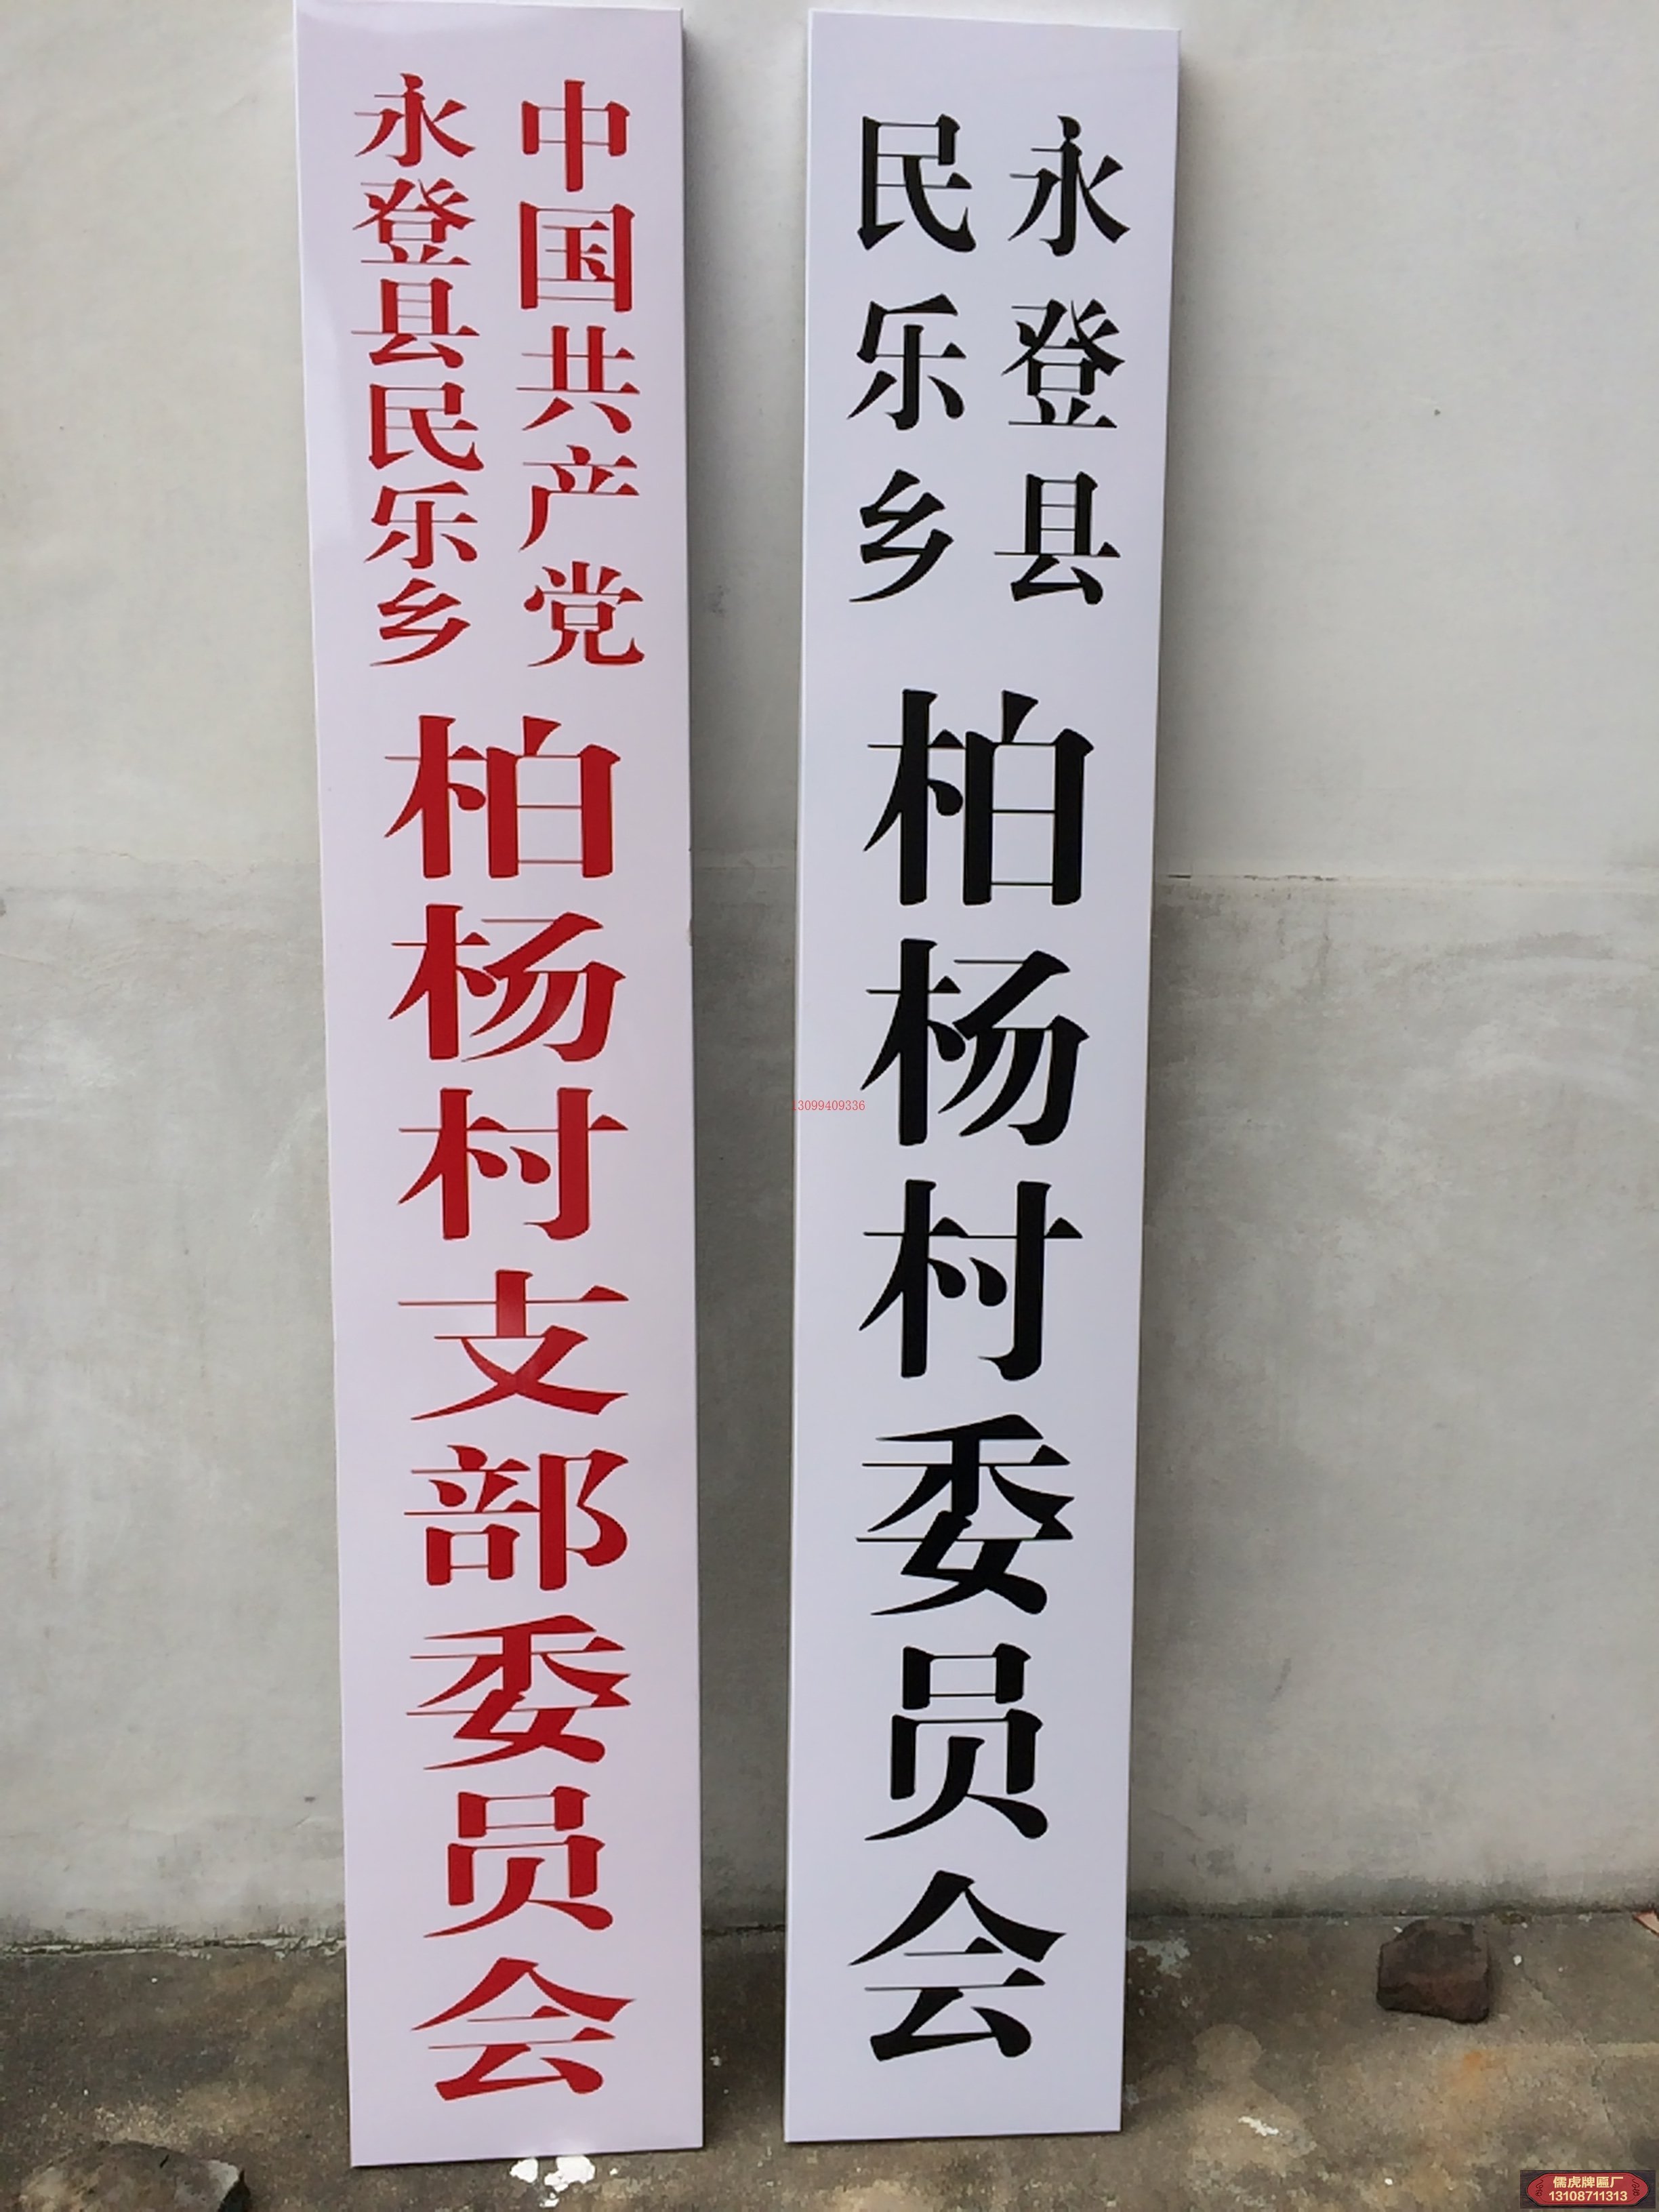 中国共产党
永登县民乐乡
柏杨村支部委员会
永登县
民乐乡
柏杨村委员会
13099409336
儒虎牌匾厂
13108711313